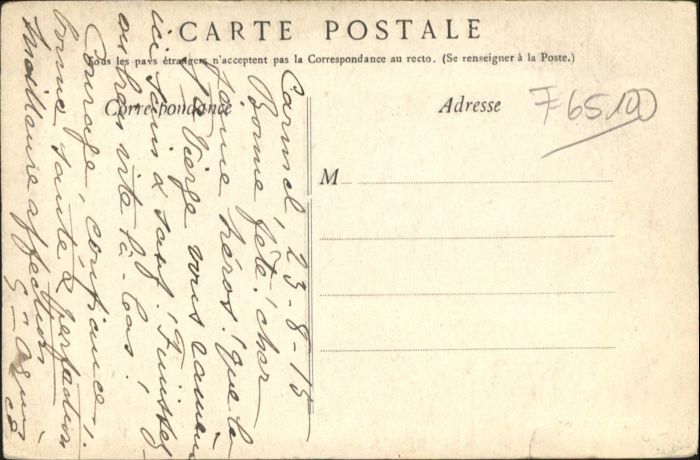 CARTE POSTALE
Tous les pays étrangers n'acceptent pas la Correspondance au recto. (Se renseigner à la Poste.)
Correspondance
Adresse
M
F6510
Carmel, 23-8-15
Bonne fête! cher
jeune héros! que la
Ste Vierge vous ramène
ici sain & sauf! Finissez
vite là-bas!
Courage, confiance,
bonne santé &
Meilleure affection